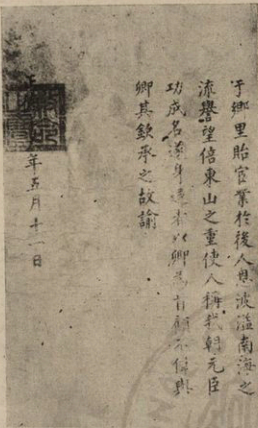 于鄉里貽官業於後人恩波溢南海之
流譽望倍東山之重使人稱我朝元臣
功成名遂身退者以卿為首顧不偉與
卿其欽承之故諭
年五月十一日